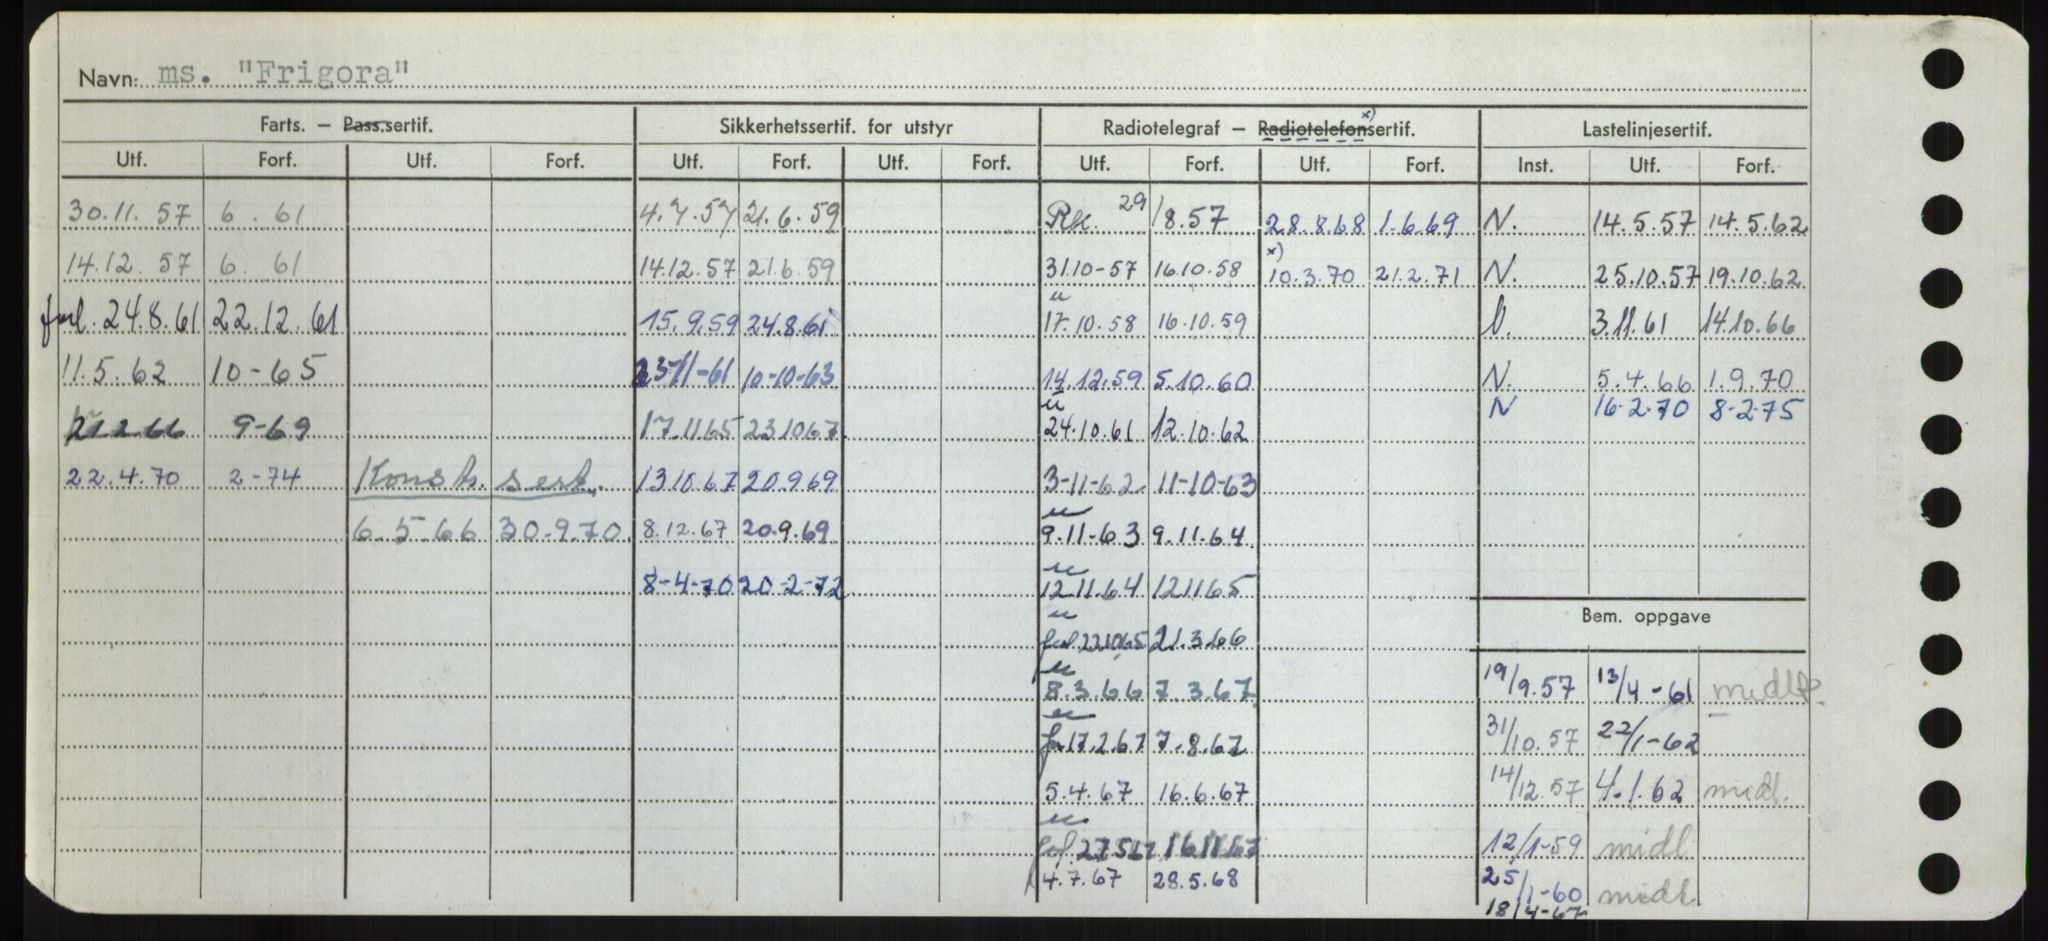 Navn: ms. "Frigora"
Farts. – Pass.sertif. Sikkerhetssertif. for utstyr Radiotelegraf – Radiotelefonsertif. x) Lastelinjesertif.
Utf. Forf. Utf. Forf. Utf. Forf. Utf. Forf. Utf. Forf. Utf. Forf. Inst. Utf. Forf.
30.11.57 6. 61 4.7.57 21.6.59 29/8.57 28.8.68 1.6.69 N. 14.5.57 14.5.62
14.12.57 6. 61 14.12.57 21.6.59 31.10-57 16.10.58 x) 10.3.70 21.2.71 N. 25.10.57 19.10.62
forl. 24.8.61 22.12.61 15.9.59 24.8.61 17.10.58 16.10.59 3.11.61 14.10.66
11.5.62 10-65 23-11-61 10-10-63 14.12.59 5.10.60 N. 5.4.66 1.9.70
N 16-2-70 8-2-75
21.2.66 9-69 17.11.65 23.10.67 24.10.61 12.10.62
22.4.70 2-74 Konstr. sert. 13.10.67 20.9.69 3-11-62 11-10-63
6.5.66 30.9.70 8.12.67 20.9.69 9.11-63 9.11-64
8-4-70 20-2-72 12.11.64 12.11.65
22.10.65 21.3.66
8.3.66 7.3.67
17.2.67 7.8.67
5.4.67 16.6.67
27.5.67 16.11.67
4.7.67 28.5.68
Bem. oppgave
19/9.57 13/4-61 midl.
31/10.57 22/1-62
14/12.57 4.1.62 midl.
12/1-59 midl
25/1-60 midl.
18/4-67